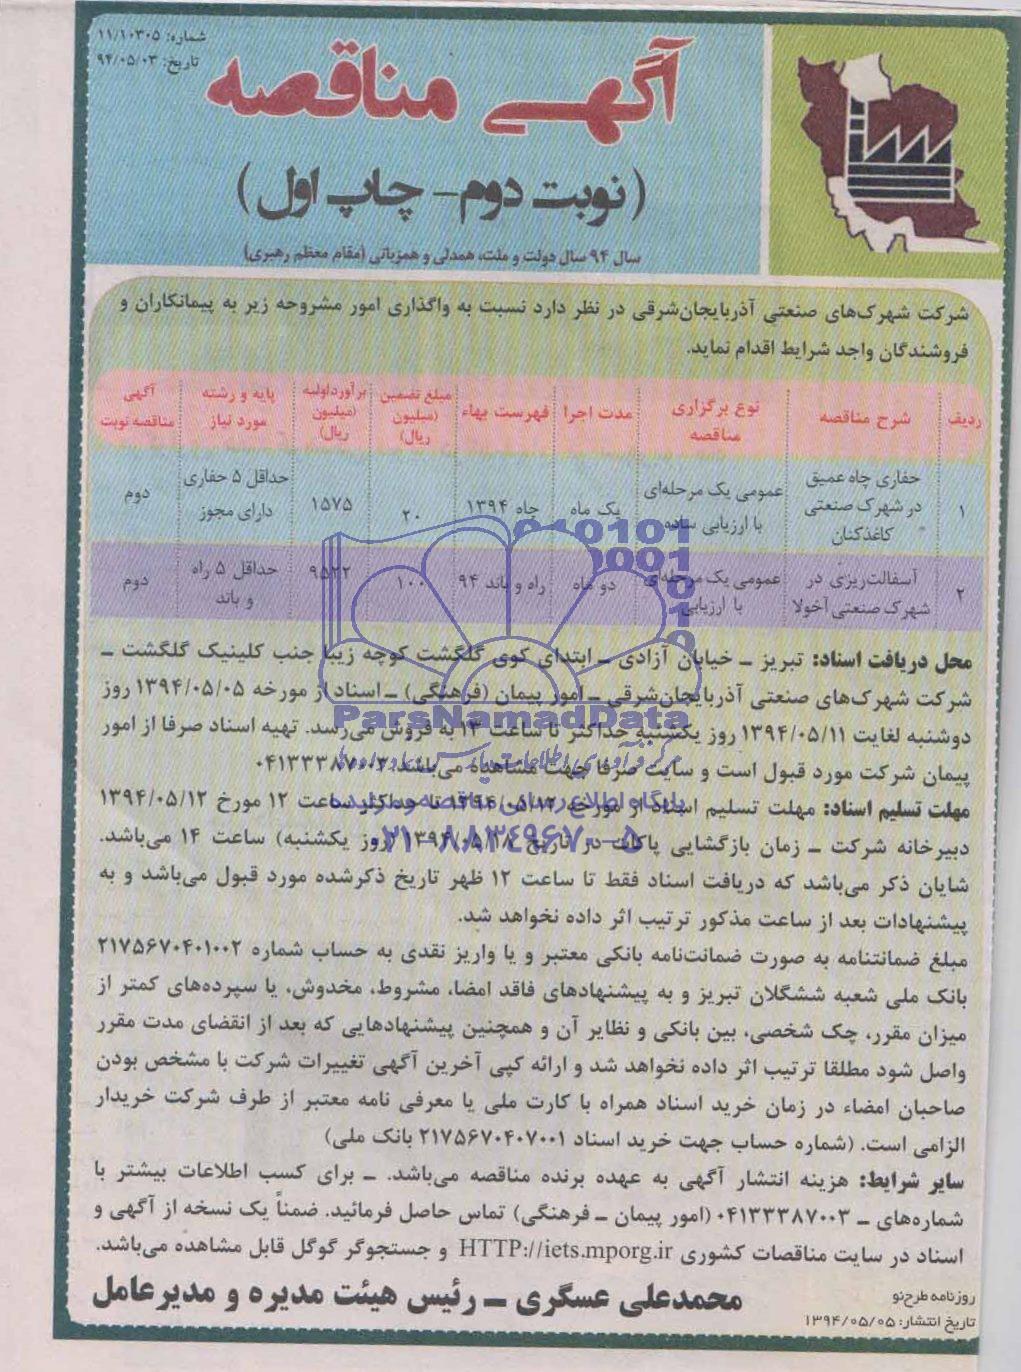 شماره: ۱۱/۱۰۳۰۵
تاریخ: ۹۴/۰۵/۰۳
آگهی مناقصه
(نوبت دوم - چاپ اول)
سال ۹۴ سال دولت و ملت، همدلی و همزبانی (مقام معظم رهبری)
شرکت شهرک‌های صنعتی آذربایجان‌شرقی در نظر دارد نسبت به واگذاری امور مشروحه زیر به پیمانکاران و
فروشندگان واجد شرایط اقدام نماید.
ردیف شرح مناقصه نوع برگزاری مناقصه مدت اجرا فهرست بهاء مبلغ تضمین (میلیون ریال) برآورد اولیه (میلیون ریال) پایه و رشته مورد نیاز آگهی مناقصه نوبت
۱ حفاری چاه عمیق در شهرک صنعتی کاغذکنان عمومی یک مرحله‌ای با ارزیابی ساده یک ماه چاه ۱۳۹۴ ۲۰ ۱۵۷۵ حداقل ۵ حفاری دارای مجوز دوم
۲ آسفالت‌ریزی در شهرک صنعتی آخولا عمومی یک مرحله‌ای با ارزیابی دو ماه راه و باند ۹۴ ۱۰۰ ۹۵۲۲ حداقل ۵ راه و باند دوم
محل دریافت اسناد: تبریز - خیابان آزادی - ابتدای کوی گلگشت کوچه زیبا جنب کلینیک گلگشت -
شرکت شهرک‌های صنعتی آذربایجان‌شرقی - امور پیمان (فرهنگی) - اسناد از مورخه ۱۳۹۴/۰۵/۰۵ روز
دوشنبه لغایت ۱۳۹۴/۰۵/۱۱ روز یکشنبه حداکثر تا ساعت ۱۳ به فروش می‌رسد. تهیه اسناد صرفا از امور
پیمان شرکت مورد قبول است و سایت صرفا جهت مشاهده می‌باشد. ۰۴۱۳۳۳۸۷۰۰۳
مهلت تسلیم اسناد: مهلت تسلیم اسناد از مورخه ۱۳۹۴/۰۵/۱۲ تا حداکثر ساعت ۱۲ مورخ ۱۳۹۴/۰۵/۱۲
دبیرخانه شرکت - زمان بازگشایی پاکات در تاریخ ۱۳۹۴/۰۵/۱۸ (روز یکشنبه) ساعت ۱۴ می‌باشد.
شایان ذکر می‌باشد که دریافت اسناد فقط تا ساعت ۱۲ ظهر تاریخ ذکرشده مورد قبول می‌باشد و به
پیشنهادات بعد از ساعت مذکور ترتیب اثر داده نخواهد شد.
مبلغ ضمانتنامه به صورت ضمانت‌نامه بانکی معتبر و یا واریز نقدی به حساب شماره ۲۱۷۵۶۷۰۴۰۱۰۰۲
بانک ملی شعبه ششگلان تبریز و به پیشنهادهای فاقد امضا، مشروط، مخدوش، یا سپرده‌های کمتر از
میزان مقرر، چک شخصی، بین بانکی و نظایر آن و همچنین پیشنهادهایی که بعد از انقضای مدت مقرر
واصل شود مطلقا ترتیب اثر داده نخواهد شد و ارائه کپی آخرین آگهی تغییرات شرکت با مشخص بودن
صاحبان امضاء در زمان خرید اسناد همراه با کارت ملی یا معرفی نامه معتبر از طرف شرکت خریدار
الزامی است. (شماره حساب جهت خرید اسناد ۲۱۷۵۶۷۰۴۰۷۰۰۱ بانک ملی)
سایر شرایط: هزینه انتشار آگهی به عهده برنده مناقصه می‌باشد. - برای کسب اطلاعات بیشتر با
شماره‌های - ۰۴۱۳۳۳۸۷۰۰۳ (امور پیمان - فرهنگی) تماس حاصل فرمائید. ضمناً یک نسخه از آگهی و
اسناد در سایت مناقصات کشوری HTTP://iets.mporg.ir و جستجوگر گوگل قابل مشاهده می‌باشد.
محمدعلی عسگری - رئیس هیئت مدیره و مدیرعامل
روزنامه طرح‌نو
تاریخ انتشار: ۱۳۹۴/۰۵/۰۵
ParsNamadData
۰۲۱-۸۸۳۴۹۶۷۰-۵